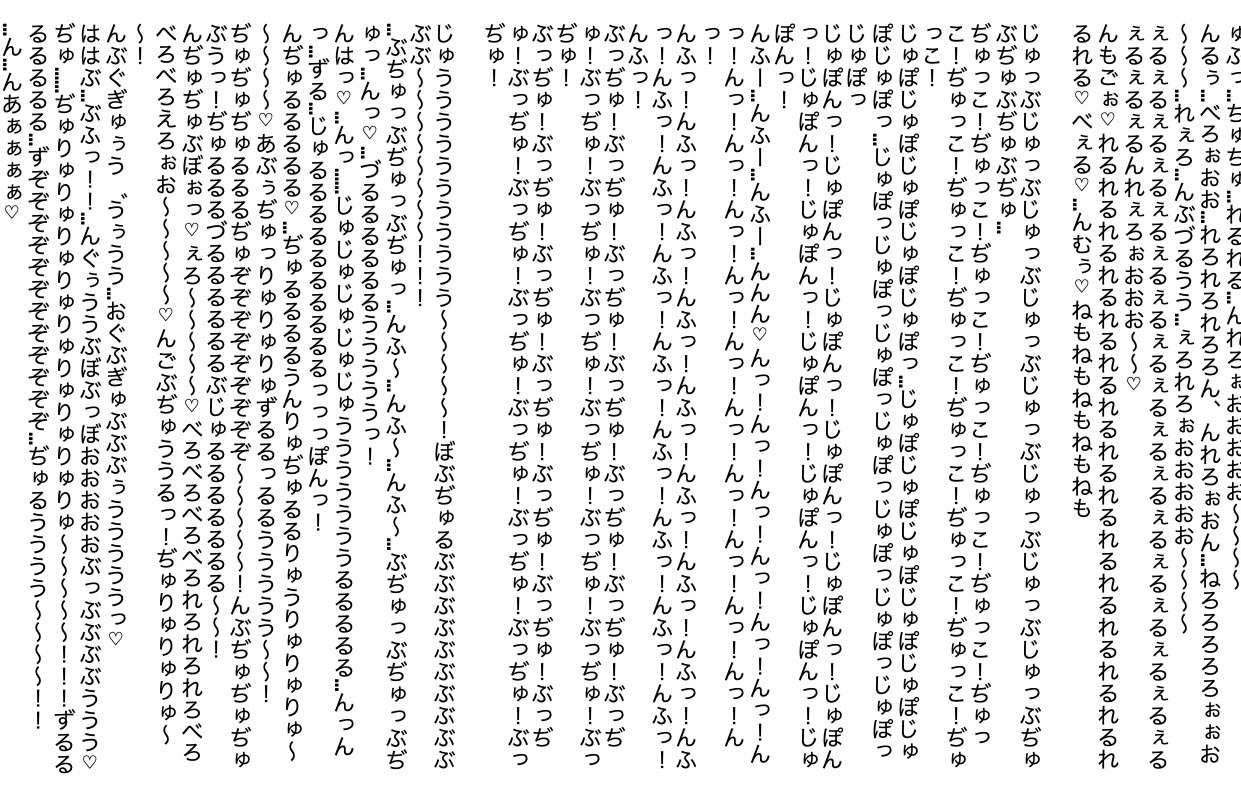 ゅぶっ…ちゅちゅ…れるれる…んれろぉおおおおお～～～～
んるぅ…べろぉおお…れろれろれろろん、んれろぉおん…ねろろろろろぉぉお
～～～…れぇろ…んぶづるうう…ぇろれろぉおおおおお～～～～
えるぇるえるぇるえるぇるえるぇるえるぇるえるぇるえるぇるえるぇるえる
ぇるぇるえるんれぇろぉおおお～～♡
んもごぉ♡れるれるれるれるれるれるれるれるれるれるれるれるれるれるれ
るれる♡べぇる♡…んむぅ♡ねもねもねもねもねも
じゅっぶじゅっぶじゅっぶじゅっぶじゅっぶじゅっぶじゅっぶじゅっぶぢゅ
ぶぢゅぶぢゅぶぢゅ…
ぢゅっこ！ぢゅっこ！ぢゅっこ！ぢゅっこ！ぢゅっこ！ぢゅっこ！ぢゅっ
こ！ぢゅっこ！ぢゅっこ！ぢゅっこ！ぢゅっこ！ぢゅっこ！ぢゅっこ！ぢゅ
っこ！
じゅぽじゅぽじゅぽじゅぽじゅぽっ…じゅぽじゅぽじゅぽじゅぽじゅぽじゅ
ぽじゅぽっ…じゅぽっじゅぽっじゅぽっじゅぽっじゅぽっじゅぽっじゅぽっ
じゅぽっ
じゅぽんっ！じゅぽんっ！じゅぽんっ！じゅぽんっ！じゅぽんっ！じゅぽん
っ！じゅぽんっ！じゅぽんっ！じゅぽんっ！じゅぽんっ！じゅぽんっ！じゅ
ぽんっ！
んふー…んふー…んふー…んんん♡んっ！んっ！んっ！んっ！んっ！んっ！ん
っ！んっ！んっ！んっ！んっ！んっ！んっ！んっ！んっ！んっ！んっ！ん
っ！
んふっ！んふっ！んふっ！んふっ！んふっ！んふっ！んふっ！んふっ！んふ
っ！んふっ！んふっ！んふっ！んふっ！んふっ！んふっ！んふっ！んふっ！
んふっ！
ぶっぢゅ！ぶっぢゅ！ぶっぢゅ！ぶっぢゅ！ぶっぢゅ！ぶっぢゅ！ぶっぢ
ゅ！ぶっぢゅ！ぶっぢゅ！ぶっぢゅ！ぶっぢゅ！ぶっぢゅ！ぶっぢゅ！ぶっ
ぢゅ！
ぶっぢゅ！ぶっぢゅ！ぶっぢゅ！ぶっぢゅ！ぶっぢゅ！ぶっぢゅ！ぶっぢ
ゅ！ぶっぢゅ！ぶっぢゅ！ぶっぢゅ！ぶっぢゅ！ぶっぢゅ！ぶっぢゅ！ぶっ
ぢゅ！
じゅうううううううううううう～～～～～！ぼぶぢゅるぶぶぶぶぶぶぶぶぶ
ぶぶ～～～～～～～～！！！
…ぶぢゅっぶぢゅっぶぢゅっ…んふ～…んふ～…んふ～…ぶぢゅっぶぢゅっぶぢ
ゅっ…んっ♡…づるるるるるるうううううっ！
んはっ♡…んっ……じゅじゅじゅじゅじゅうううううううるるるるる…んっん
っ…ずる…じゅるるるるるるるるるっっっぽんっ！
んぢゅるるるるるる♡…ぢゅるるるるるうんりゅぢゅるるりゅうりゅりゅりゅ～
～～～～♡あぶぅぢゅっりゅりゅりゅずるるっるるううううう～～！
ぢゅぢゅぢゅるるるぢゅぞぞぞぞぞぞぞぞぞ～～～～～！んぶぢゅぢゅぢゅ
ぶうっ！ぢゅるるるづるるるるるるぶじゅるるるるるるる～～！
んぢゅぢゅぶぼぉっ♡ぇろ～～～～～♡べろべろべろべろれろれろれろべろ
べろべろえろぉお～～～～～♡んごぶぢゅううるっ！ぢゅりゅりゅりゅ～
～！
んぶぐぎゅぅう゛うぅうう…おぐぶぎゅぶぶぶぅううううううっ♡
ははぶ…ぶふっ！！…んぐぅううぶぼぶっぼおおおおおぶっぶぶぶぶううう♡
ぢゅ……ぢゅりゅりゅりゅりゅりゅりゅりゅりゅりゅ～～～～～！！！ずるる
るるるるる…ずぞぞぞぞぞぞぞぞぞぞぞぞ…ぢゅるうううう～～～～～！！
…ん…んあぁぁぁぁ♡